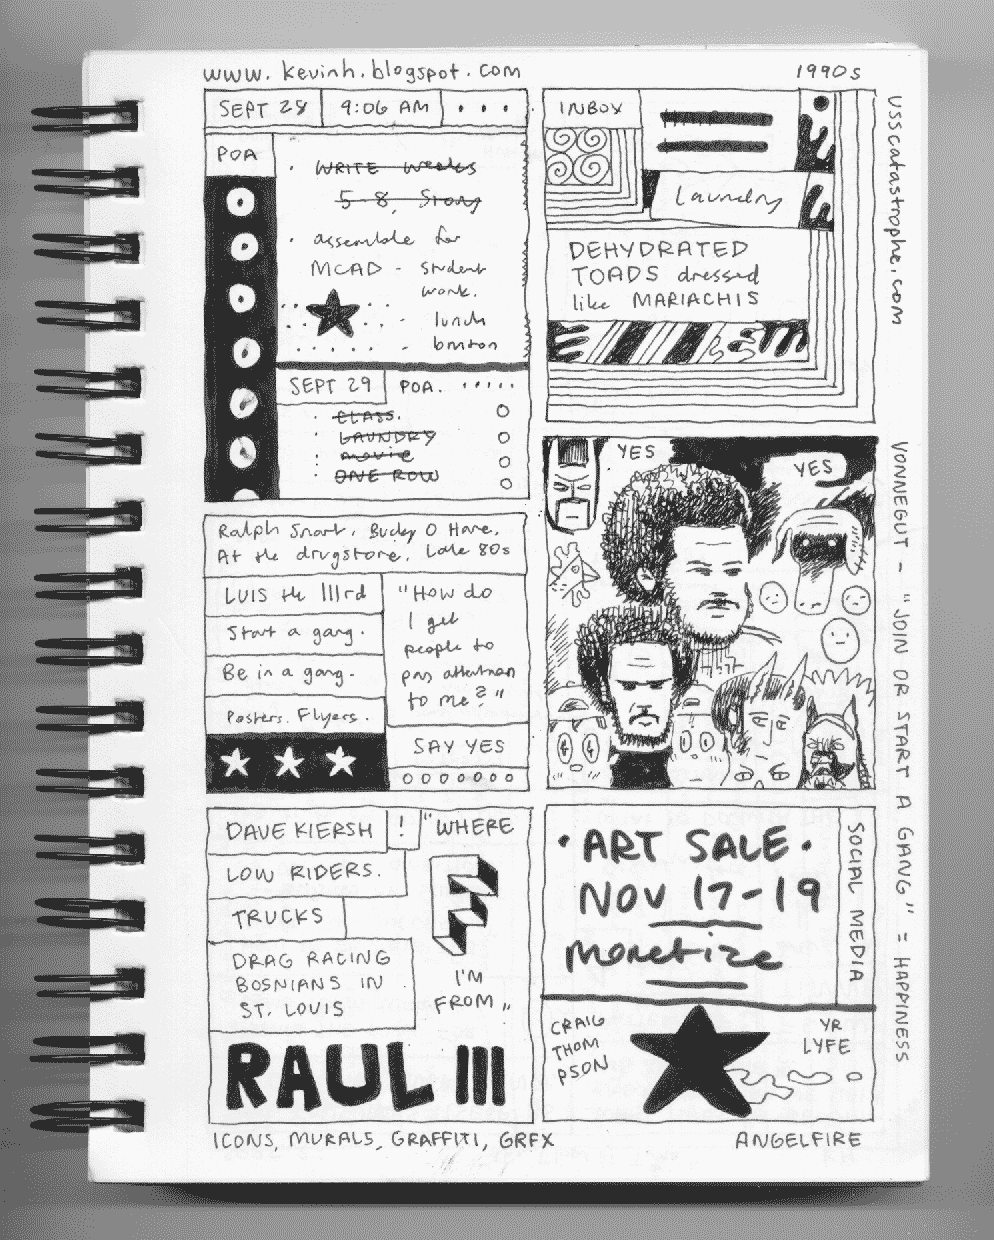 www. kevinh. blogspot. com
1990s
SEPT 28
9:06 AM
POA
WRITE weeks
5-8, Story
assemble for
MCAD - student
work.
lunch
burton
SEPT 29
POA.
CLASS.
LAUNDRY
movie
ONE ROW
INBOX
Laundry
DEHYDRATED
TOADS dressed
like MARIACHIS
USScatastrophe.com
Ralph Snart, Bucky O Hare,
At the drugstore, Late 80s
LUIS the IIIrd
Start a gang.
Be in a gang.
Posters. Flyers.
"How do
I get
people to
pay attention
to me?"
SAY YES
YES
YES
VONNEGUT - "JOIN OR START A GANG" = HAPPINESS
DAVE KIERSH !
LOW RIDERS.
TRUCKS
DRAG RACING
BOSNIANS IN
ST. LOUIS
"WHERE
I'M
FROM"
RAUL III
· ART SALE ·
NOV 17-19
monetize
SOCIAL MEDIA
CRAIG
THOM
PSON
YR
LYFE
ICONS, MURALS, GRAFFITI, GRFX
ANGELFIRE